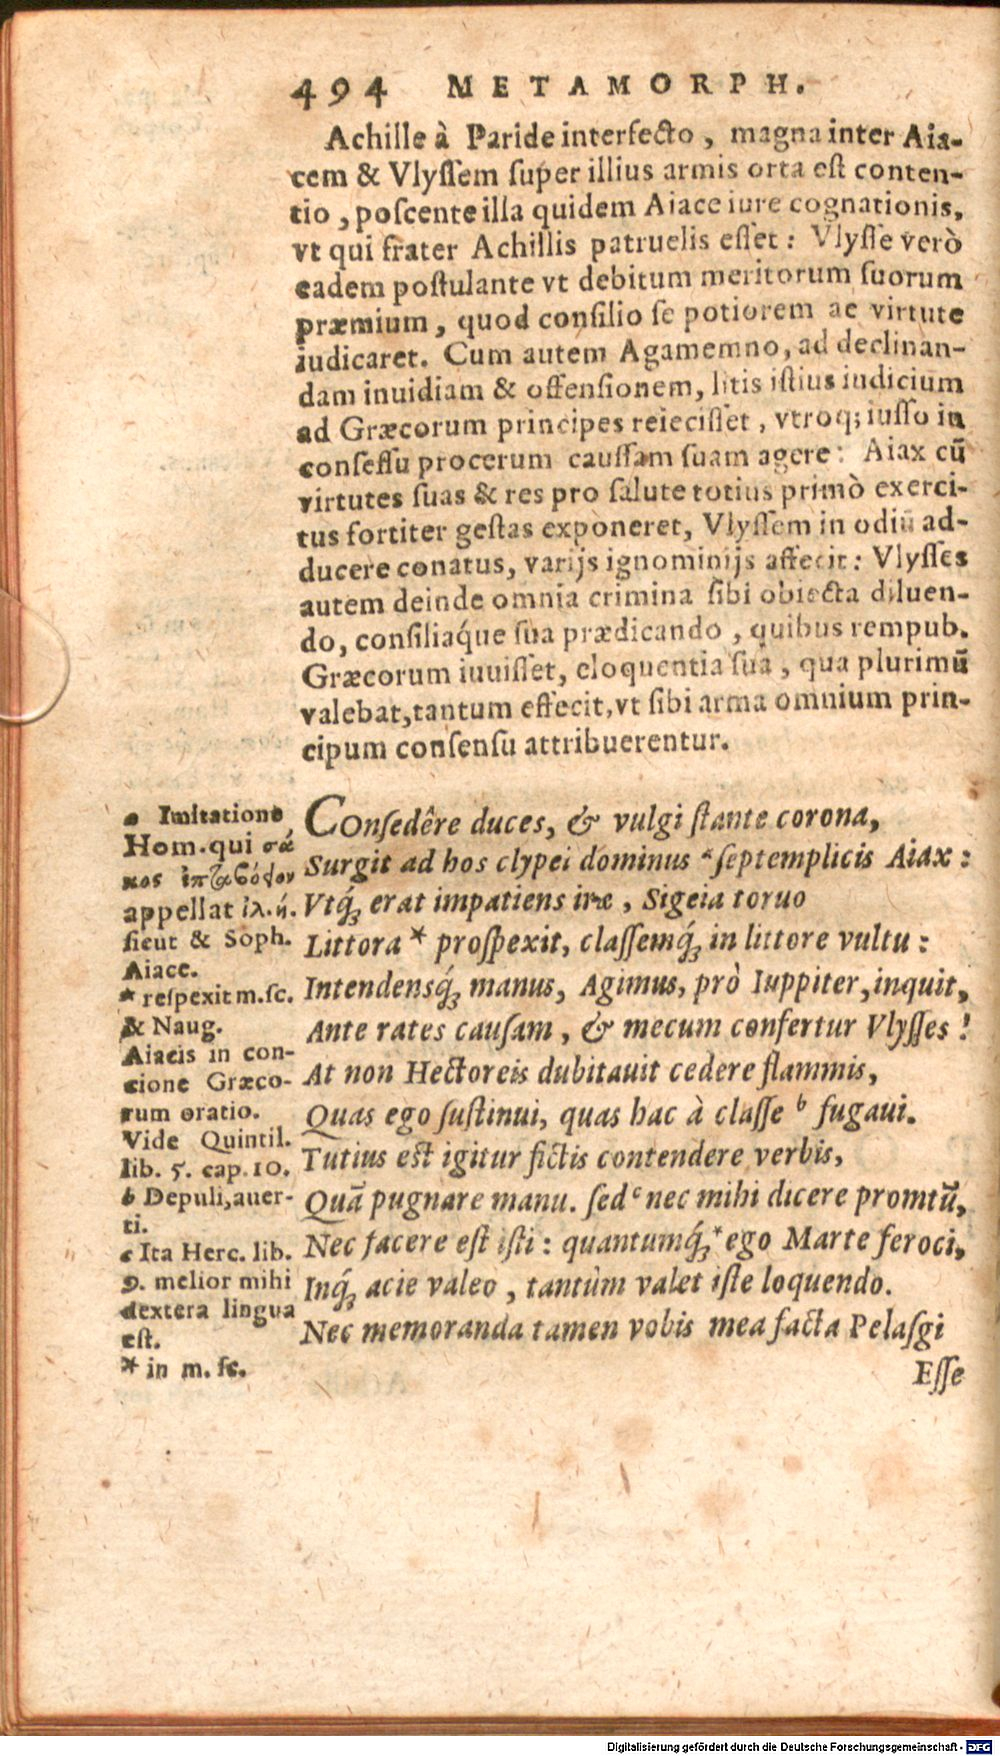 494 METAMORPH.
Achille à Paride interfecto, magna inter Aia-
cem & Vlyſſem ſuper illius armis orta eſt conten-
tio, poſcente illa quidem Aiace iure cognationis,
vt qui frater Achillis patruelis eſſet: Vlyſſe verò
eadem poſtulante vt debitum meritorum ſuorum
præmium, quod conſilio ſe potiorem ac virtute
iudicaret. Cum autem Agamemno, ad declinan-
dam inuidiam & offenſionem, litis iſtius iudicium
ad Græcorum principes reieciſſet, vtroq; iuſſo in
conſeſſu procerum cauſſam ſuam agere: Aiax cū
virtutes ſuas & res pro ſalute totius primò exerci-
tus fortiter geſtas exponeret, Vlyſſem in odiū ad-
ducere conatus, varijs ignominijs affecit: Vlyſſes
autem deinde omnia crimina ſibi obiecta diluen-
do, conſiliaq́ue ſua prædicando, quibus rempub.
Græcorum iuuiſſet, eloquentia ſua, qua plurimū
valebat, tantum effecit, vt ſibi arma omnium prin-
cipum conſenſu attribuerentur.
COnſedêre duces, & vulgi ſtante corona,
Surgit ad hos clypei dominus ᵃ ſeptemplicis Aiax:
Vtq́; erat impatiens iræ, Sigeia toruo
Littora * proſpexit, claſſemq́; in littore vultu:
Intendensq́; manus, Agimus, prò Iuppiter, inquit,
Ante rates cauſam, & mecum confertur Vlyſſes!
At non Hectoreis dubitauit cedere flammis,
Quas ego ſuſtinui, quas hac à claſſe ᵇ fugaui.
Tutius eſt igitur fictis contendere verbis,
Quā pugnare manu. ſed ᶜ nec mihi dicere promtū,
Nec facere eſt iſti: quantumq́; * ego Marte feroci,
Inq́; acie valeo, tantùm valet iſte loquendo.
Nec memoranda tamen vobis mea facta Pelaſgi
Eſſe
a Imitatione
Hom. qui σά
κος ἑπταβόειον
appellat ἰλ. ή.
ſicut & Soph.
Aiace.
* reſpexit m. ſc.
& Naug.
Aiacis in con-
cione Græco-
rum oratio.
Vide Quintil.
lib. 5. cap. 10.
b Depuli, auer-
ti.
c Ita Herc. lib.
9. melior mihi
dextera lingua
eſt.
* in m. ſc.
Digitalisierung gefördert durch die Deutsche Forschungsgemeinschaft - DFG